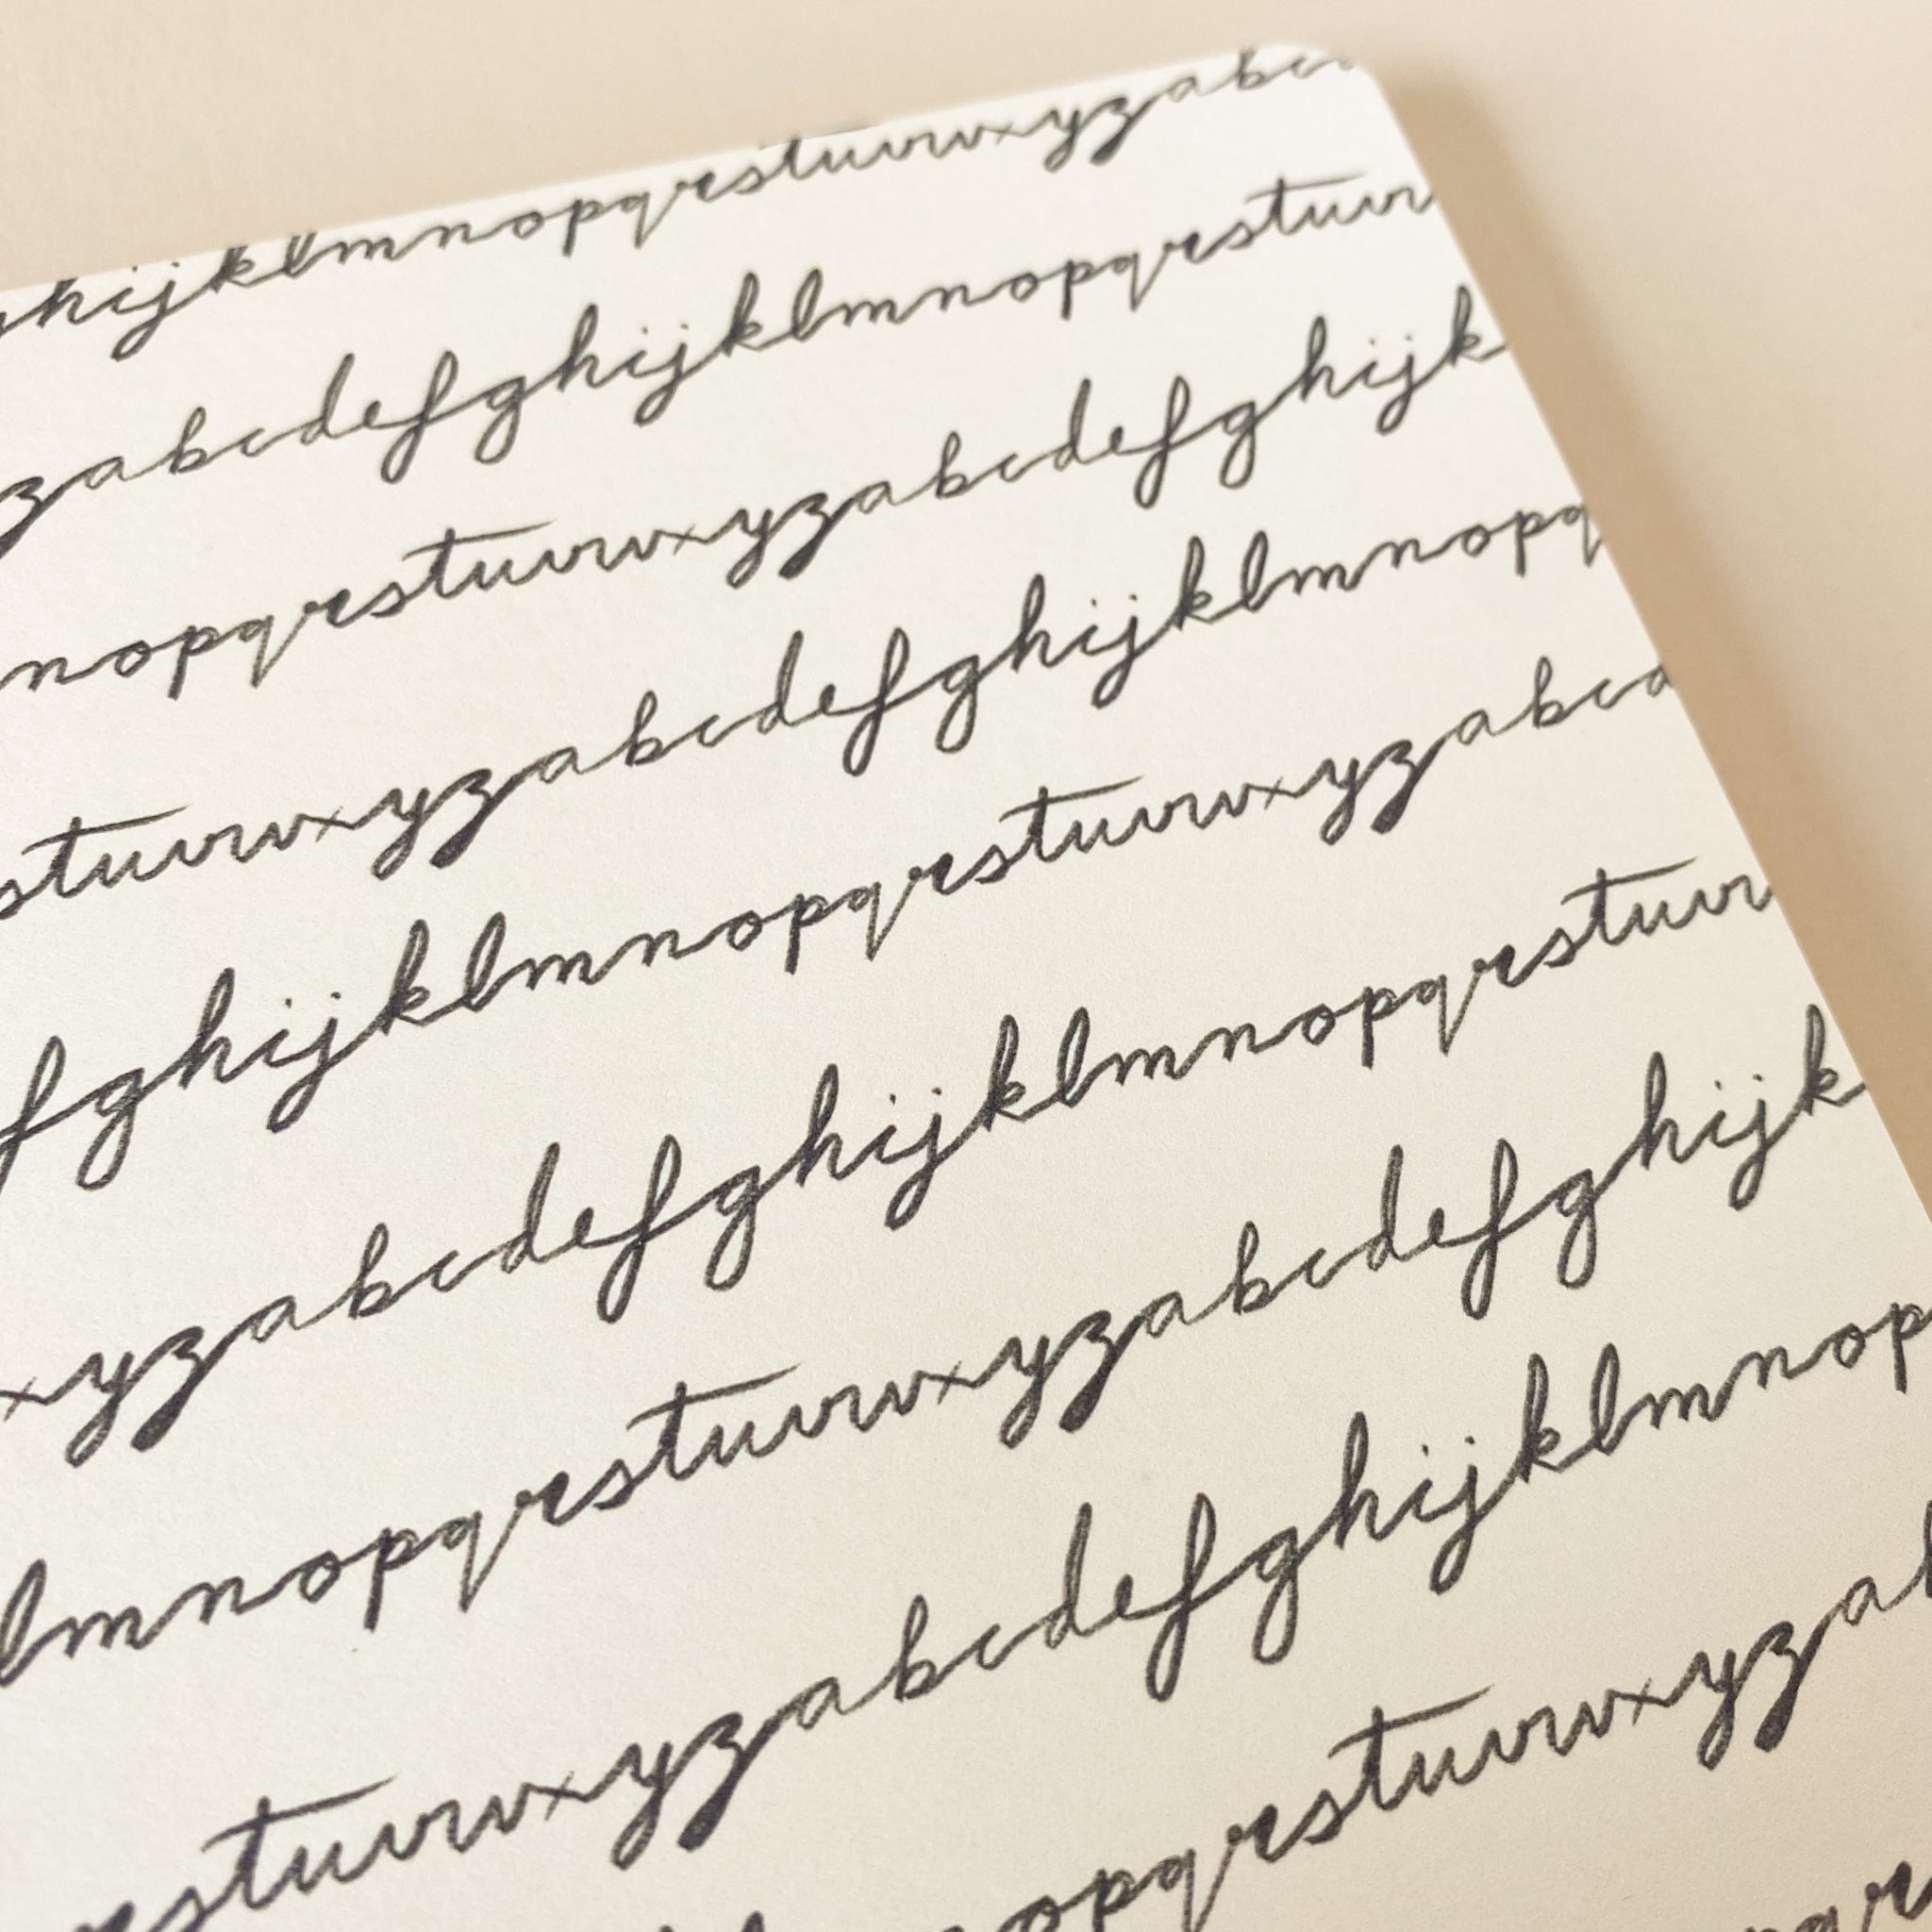 hijklmnopqrstuvwxyzabc
zabcdefghijklmnopqrstuv
nopqrstuvwxyzabcdefghijk
stuvwxyzabcdefghijklmnopq
fghijklmnopqrstuvwxyzabcd
xyzabcdefghijklmnopqrstuv
lmnopqrstuvwxyzabcdefghijk
rstuvwxyzabcdefghijklmnop
nopqrstuvwxyzab
pqr